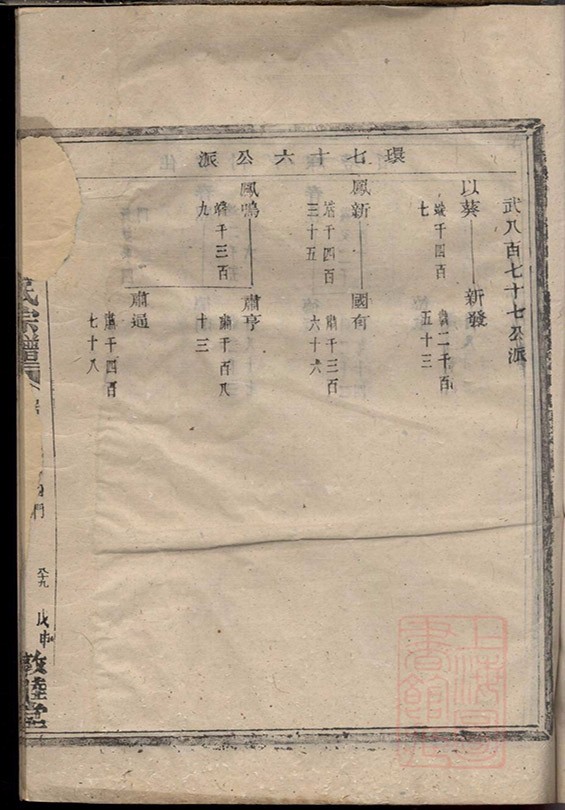 環七十六公派
武八百七十七公派
以葵
端千四百
七
新發
肅二千百
五十三
鳳新
端千四百
三十五
國有
肅千三百
六十六
鳳鳴
端千三百
九
肅亨
肅千百八
十三
肅通
肅千四百
七十八
氏宗譜
戊申
敦睦堂
上海圖
書館藏